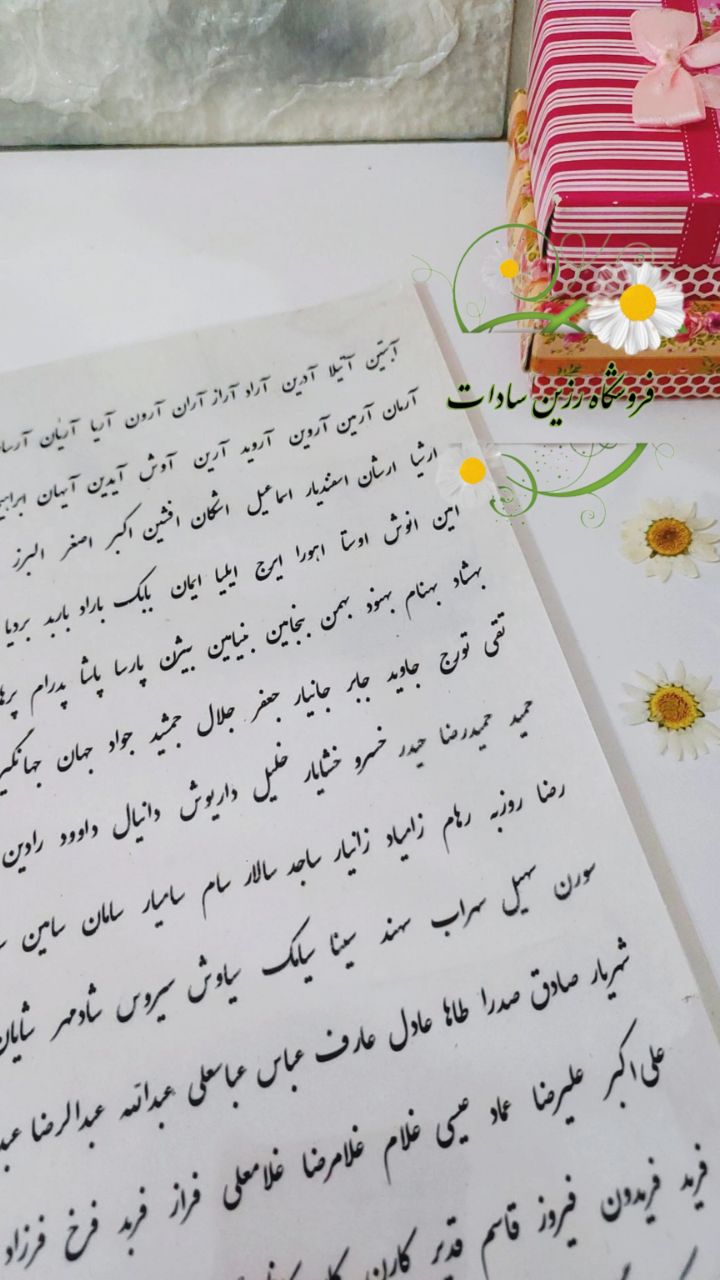 آبتین آتیلا آدرین آراد آراز آران آرون آریا آریان
آرمان آرمین آروین آروید آرین آوش آیدین آیهان
ارشیا ارشان اسفندیار اسماعیل اشکان افشین اکبر اصغر البرز
امین انوش اوستا اهورا ایرج ایلیا ایمان بابک باراد باربد بردیا
بهشاد بهنام بهنود بهمن بنجامین بنیامین بیژن پارسا پاشا پدرام
تقی تورج جاوید جابر جانیار جعفر جلال جمشید جواد جهان
حمید حمیدرضا حیدر خسرو خشایار خلیل داریوش دانیال داوود رادین
رضا روزبه رهام زامیاد زانیار ساجد سالار سام سامیار سامان سامین
سورن سهیل سهراب سهند سینا سیامک سیاوش سیروس شادمهر شایان
شهریار صادق صدرا طاها عادل عارف عباس عباسعلی عبدالله عبدالرضا
علی‌اکبر علیرضا عماد عیسی غلام غلامرضا غلامعلی فراز فربد فرخ فرزاد
فرید فریدون فیروز قاسم قدیر کارن
فروشگاه رزین سادات